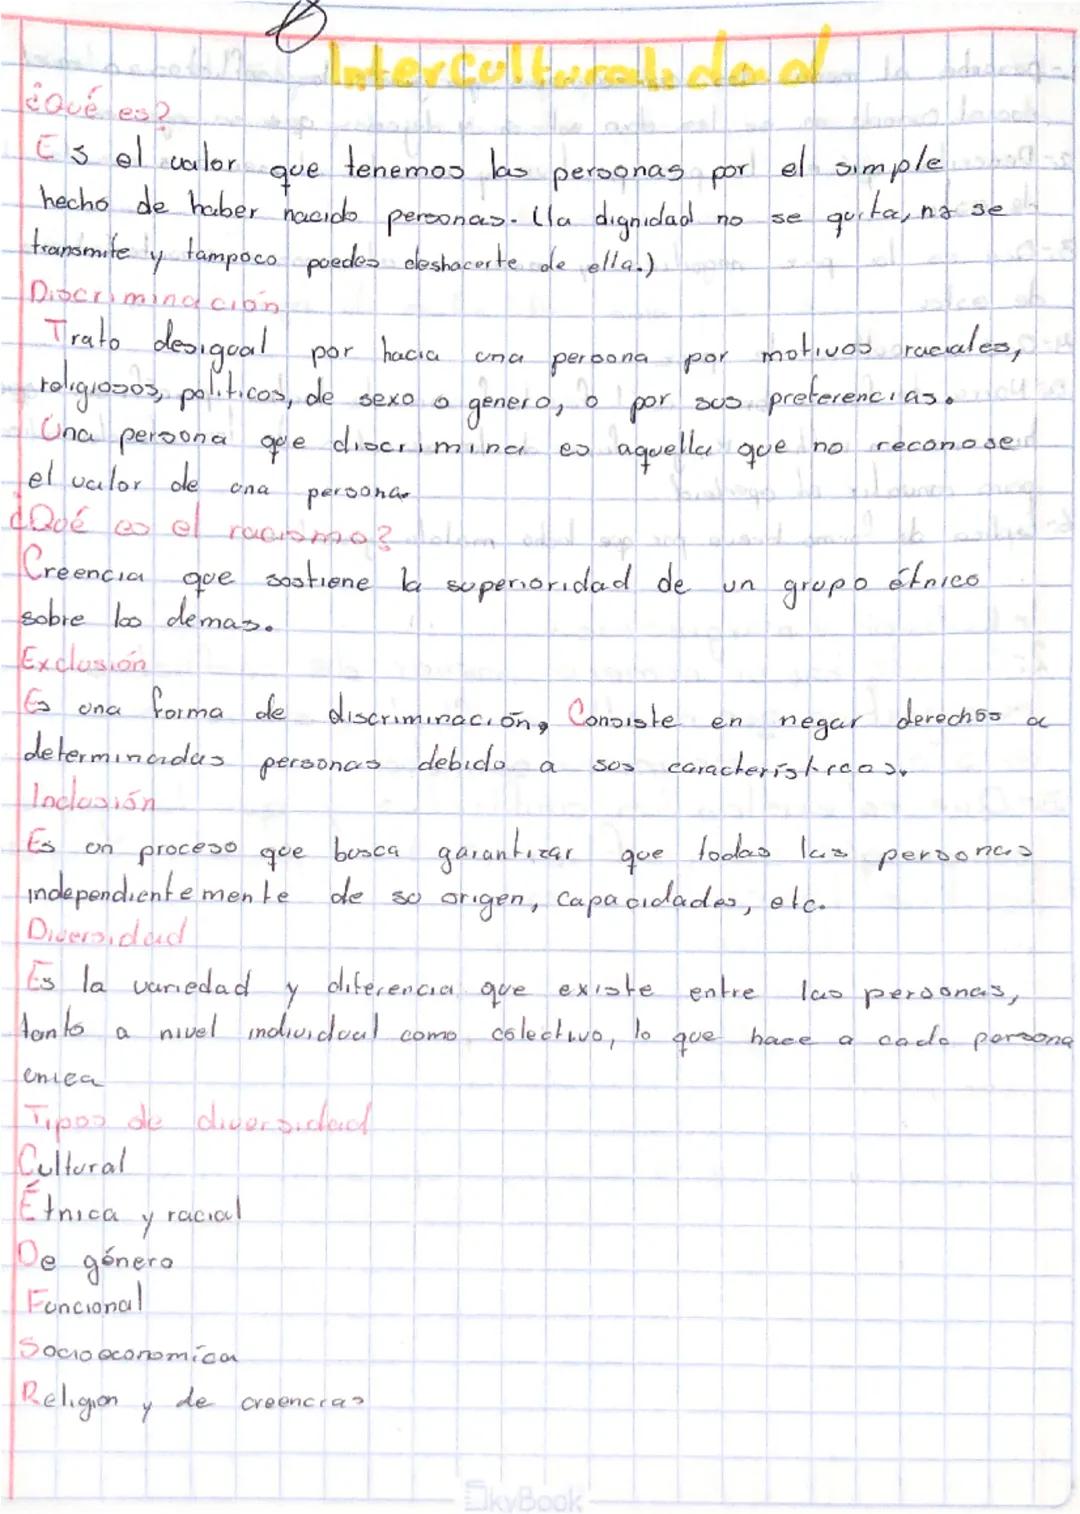 Interculturalidad
¿Qué es?
Es el valor que tenemos las personas por el simple
hecho de haber nacido personas. (la dignidad no se quita, no se
transmite y tampoco puedes deshacerte de ella.)
Discriminación
Trato desigual por hacia una persona por motivos raciales,
religiosos, políticos, de sexo o género, o por sus preferencias.
Una persona que discrimina es aquella que no reconose
el valor de una persona.
¿Qué es el racismo?
Creencia que sostiene la superioridad de un grupo étnico
sobre los demas.
Exclusión
Es una forma de discriminación, Consiste en negar derechos a
determinadas personas debido a sus características.
Inclusión
Es un proceso que busca garantizar que todas las personas
independientemente de su origen, capacidades, etc.
Diversidad
Es la variedad y diferencia que existe entre las personas,
tanto a nivel individual como colectivo, lo que hace a cada persona
unica
Tipos de diversidad
Cultural
Étnica y racial
De género
Funcional
Socioeconomica
Religion y de creencias
SkyBook